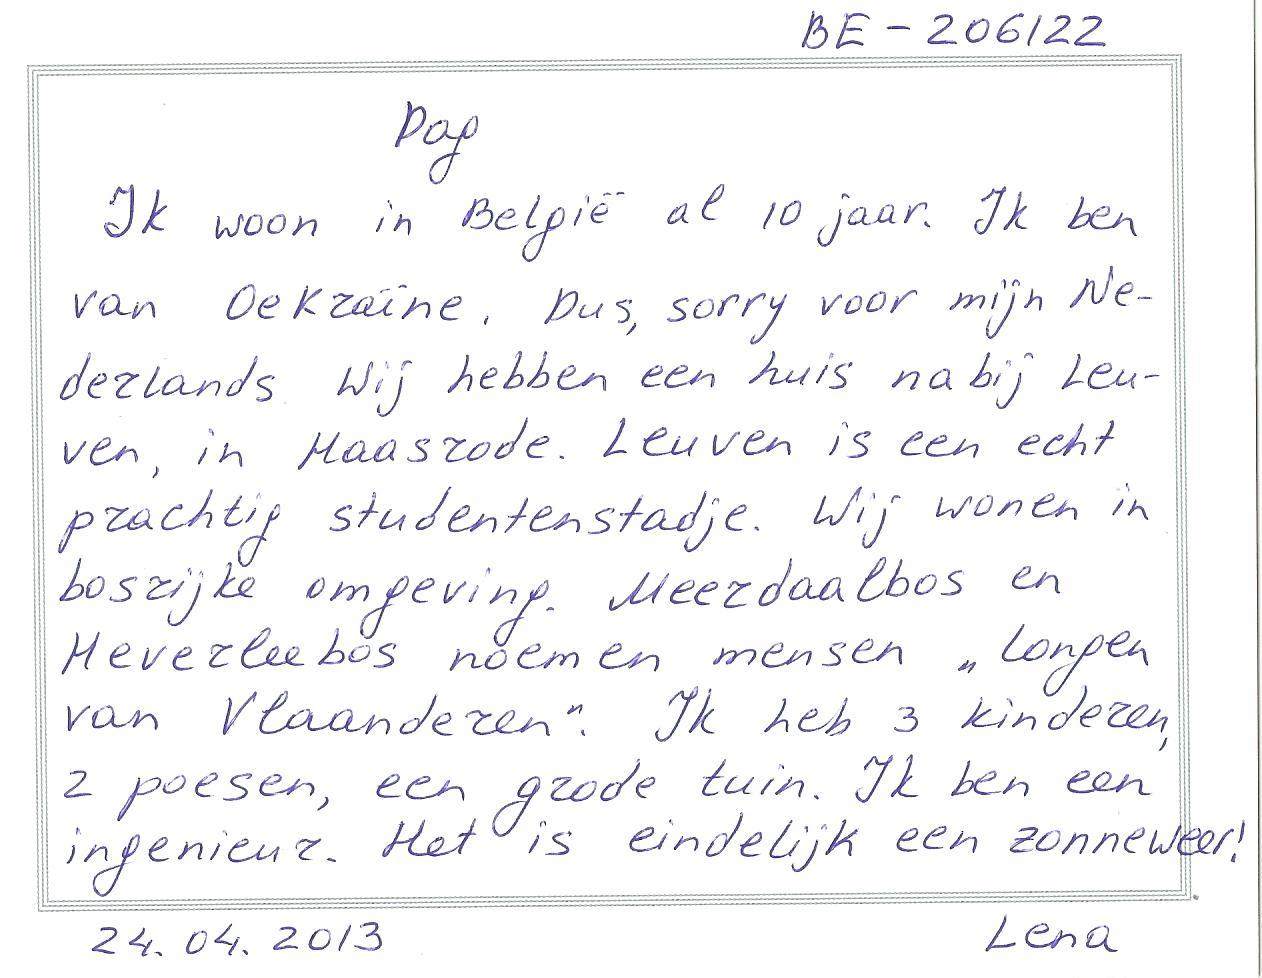 BE - 206122
Dag
Ik woon in België al 10 jaar. Ik ben
van Oekraïne. Dus, sorry voor mijn Ne-
derlands. Wij hebben een huis nabij Leu-
ven, in Haasrode. Leuven is een echt
prachtig studentenstadje. Wij wonen in
bosrijke omgeving. Meerdaalbos en
Heverleebos noemen mensen „Longen
van Vlaanderen". Ik heb 3 kinderen,
2 poesen, een grode tuin. Ik ben een
ingenieur. Het is eindelijk een zonneweer!
24.04.2013 Lena